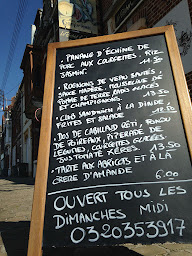 - PANANG D'ÉCHINE DE
PORC AUX COURGETTES, RIZ
JASMIN.
- ROGNONS DE VEAU SAUTÉS,
SAUCE MADÈRE, MOUSSELINE DE
POMME DE TERRE, RADIS GLACÉS
ET CHAMPIGNONS. 13.50
- CLUB SANDWICH À LA DINDE,
FRITES ET SALADE
- DOS DE CABILLAUD RÔTI, FONDU
DE POIREAUX, PIPERADE DE
LÉGUMES, COURGETTES GLACÉES.
JUS TOMATÉ XÉRÈS. 13.50
- TARTE AUX ABRICOTS ET À LA
CRÈME D'AMANDE 6.00
OUVERT TOUS LES
DIMANCHES MIDI
0320353917